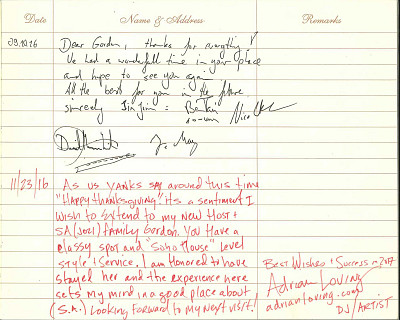 Date Name & Address Remarks
09.10.16 Dear Gordon, thanks for everything!
We had a wonderfull time in your place
and hope to see you again
All the best for you in the future.
sincerely
11/23/16 As us YANKS SAY around this time
"HAPPY thanksgiving" its a sentiment I
Wish to Extend to my new Host &
SA (JOZI) family Gordon. You Have a
classy spot and "Soho House" Level
style & Service. I am Honored to have
stayed her and the experience here
sets my mind in a good place about
(S.A.) Looking forward to my next visit!
Best Wishes & Success in 2017
Adrian Loving
adrianloving.com
DJ/ARTIST